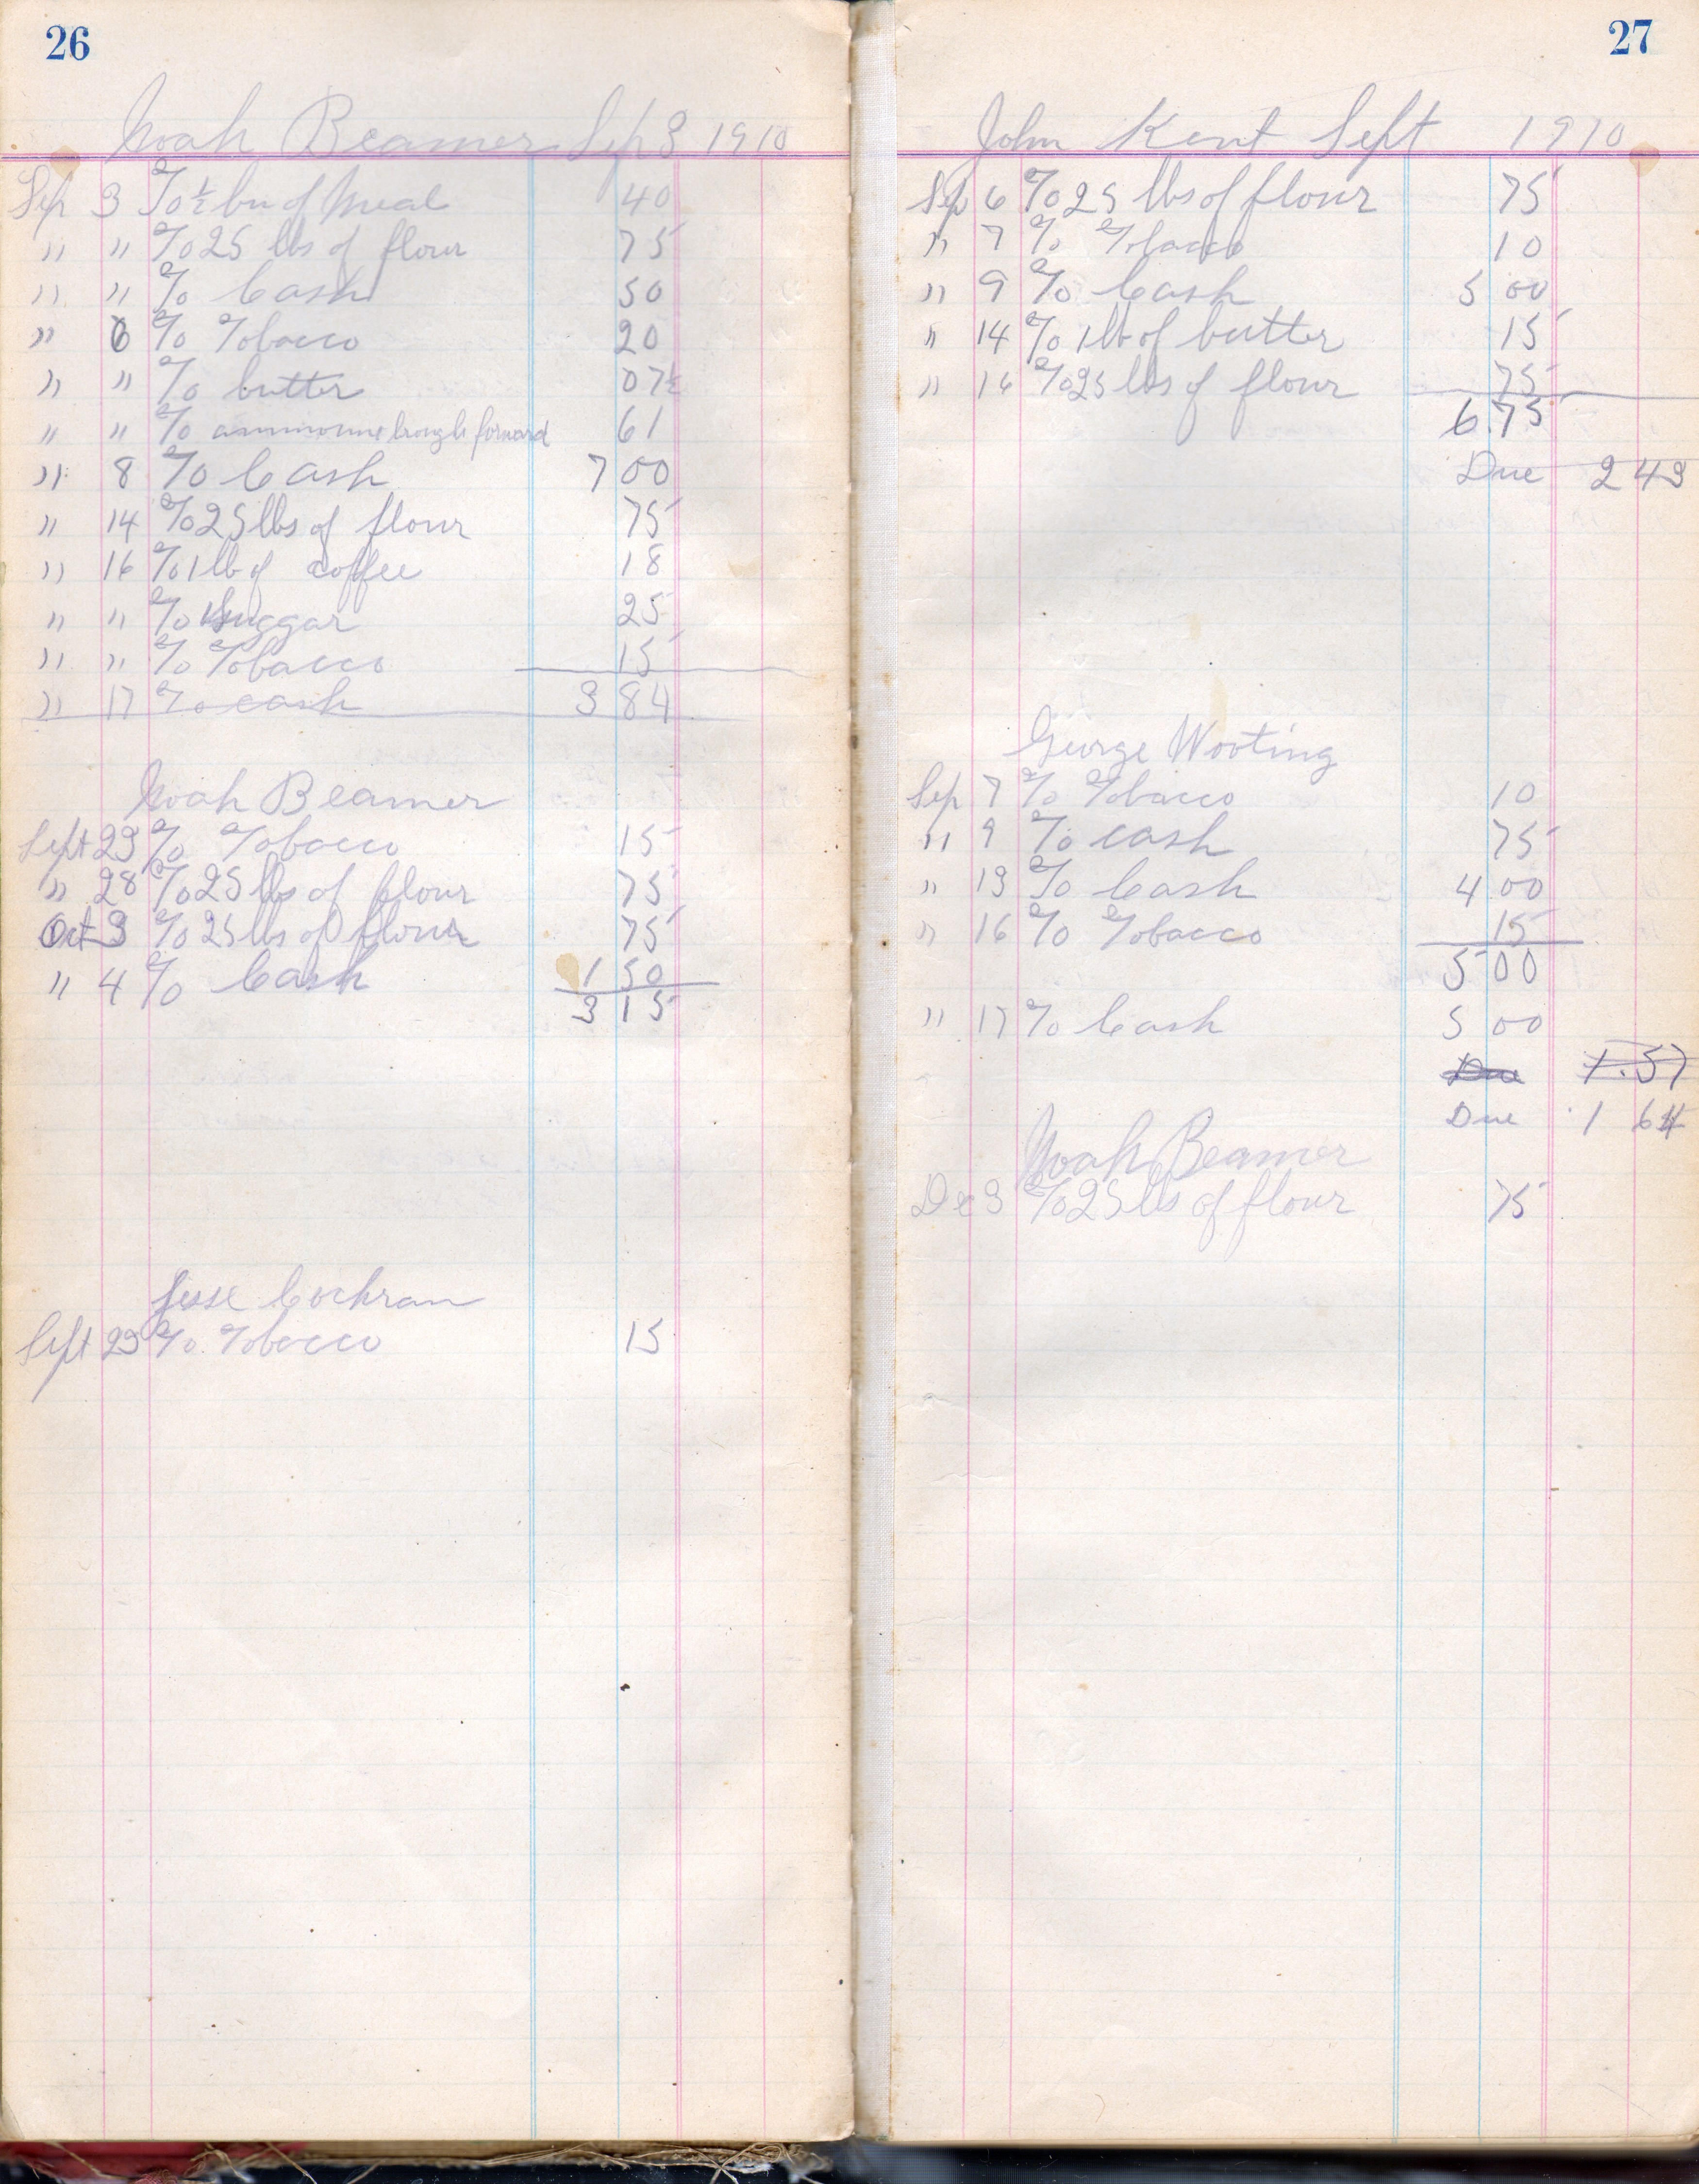 26
Noah Beamer Sep 3 1910
Sep 3 To ½ bu of Meal 40
" " To 25 lbs of flour 75
" " To Cash 50
" 6 To Tobacco 20
" " To butter 07½
" " To forward 61
" 8 To Cash 7 00
" 14 To 25 lbs of flour 75
" 16 To 1 lb of coffee 18
" " To Suggar 25
" " To Tobacco 15
" 17 To cash 3 84
Noah Beamer
Sept 23 To Tobacco 15
" 28 To 25 lbs of flour 75
Oct 3 To 25 lbs of flour 75
" 4 To Cash 1 50
3 15
Jesse Cochran
Sept 23 To Tobacco 15
27
John Kent Sept 1910
Sep 6 To 25 lbs of flour 75
" 7 To Tobacco 10
" 9 To Cash 5 00
" 14 To 1 lb of butter 15
" 16 To 25 lbs of flour 75
6.75
Due 2 43
George Wooting
Sep 7 To Tobacco 10
" 9 To cash 75
" 13 To Cash 4 00
" 16 To Tobacco 15
5 00
" 17 To Cash 5 00
Due 1.57
Due 1 64
Noah Beamer
Dec 3 To 25 lbs of flour 75